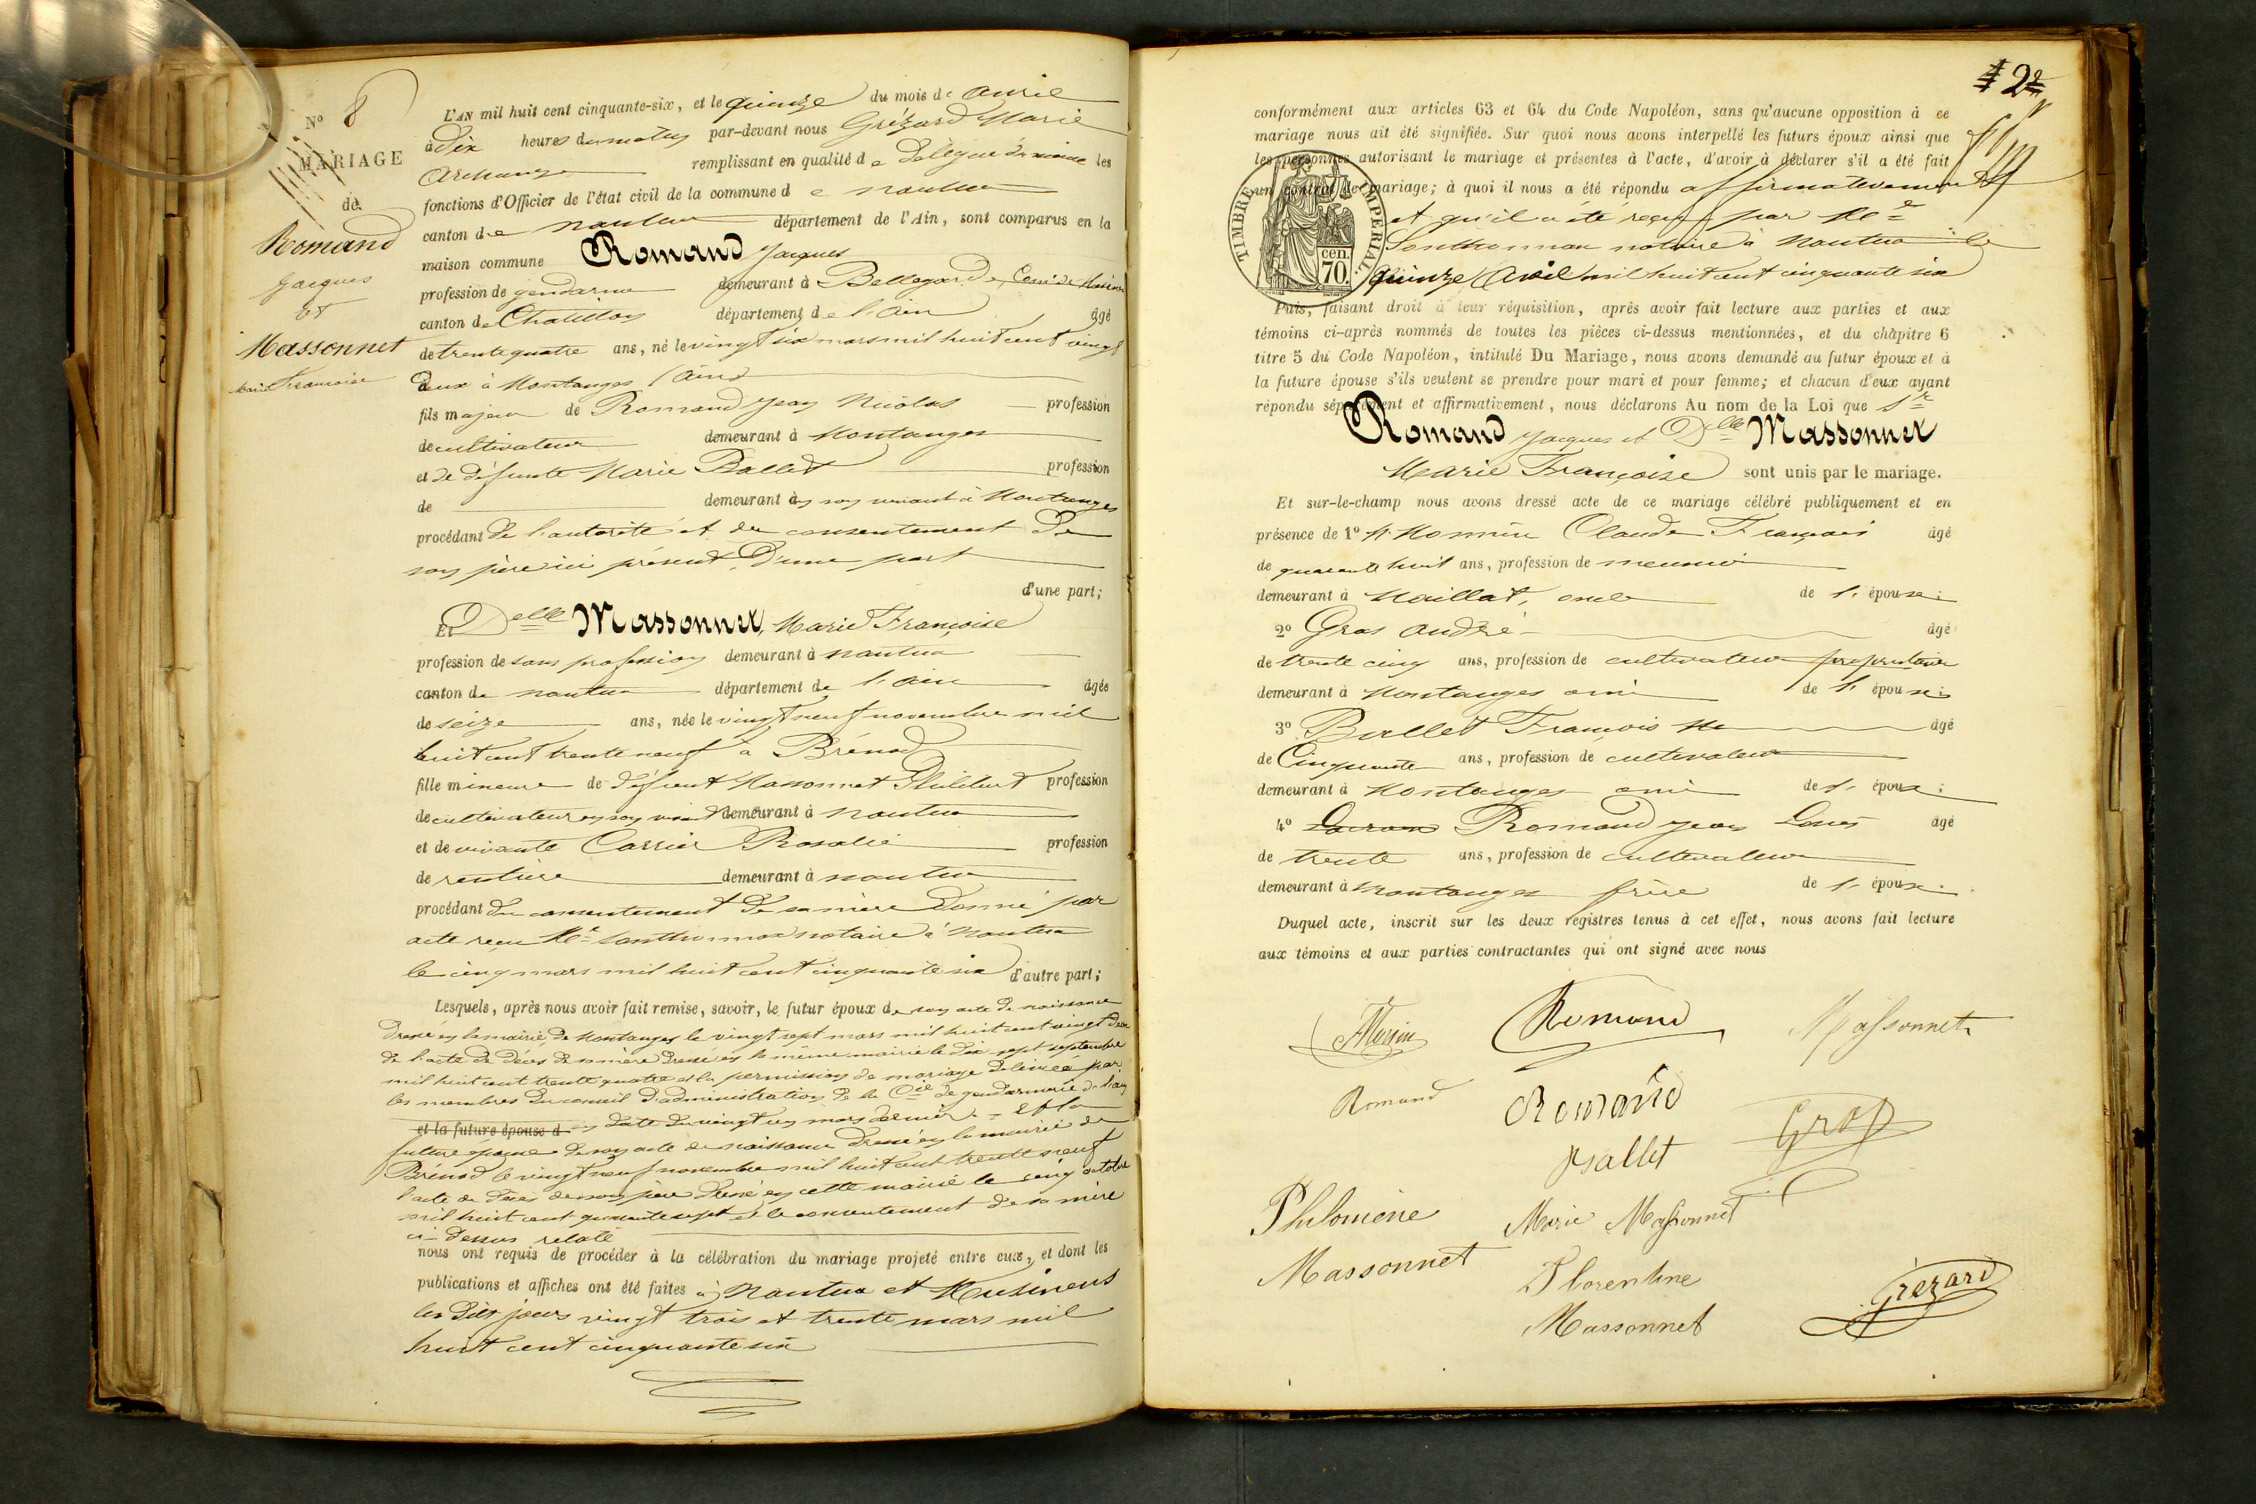 N° 8
MARIAGE
de
Romand
Jacques
et
Massonnet
Marie Françoise
L'AN mil huit cent cinquante-six, et le quinze du mois de avril
à dix heures du matin par-devant nous Grézard Marie
Archange remplissant en qualité de délégué du maire les
fonctions d'Officier de l'état civil de la commune de nantua
canton de nantua département de l'Ain, sont comparus en la
maison commune Romand Jacques
profession de gendarme demeurant à Bellegarde, Cne de Musinens
canton de Chatillon département de l'ain âgé
de trente quatre ans, né le vingt six mars mil huit cent vingt
deux à Montanges (ain)
fils majeur de Romand Jean Nicolas profession
de cultivateur demeurant à Montanges
et de défunte Marie Ballet profession
de demeurant en son vivant à Montanges
procédant de l'autorité et du consentement de
son père ici présent, d'une part
d'une part;
Et Delle Massonnet, Marie Françoise
profession de sans profession demeurant à nantua
canton de nantua département de l'ain âgée
de seize ans, née le vingt neuf novembre mil
huit cent trente neuf à Brénod
fille mineure de défunt Massonnet Philibert profession
de cultivateur en son vivant demeurant à nantua
et de vivante Carrier Rosalie profession
de rentière demeurant à nantua
procédant du consentement de sa mère donné par
acte reçu Me Santhonnax notaire à nantua
le cinq mars mil huit cent cinquante six d'autre part;
Lesquels, après nous avoir fait remise, savoir, le futur époux de son acte de naissance
dressé en la mairie de Montanges le vingt sept mars mil huit cent vingt deux
de l'acte de décès de sa mère dressé en la même mairie le dix-sept septembre
mil huit cent trente quatre et la permission de mariage délivrée par
les membres du conseil d'administration de la Cie de gendarmerie de l'ain
et la future épouse d en date du vingt un mars dernier = et la
future épouse de son acte de naissance dressé en la mairie de
Brénod le vingt neuf novembre mil huit cent trente neuf
l'acte de décès de son père dressé en cette mairie le cinq octobre
mil huit cent quarante sept et le consentement de sa mère
ci-dessus relaté
nous ont requis de procéder à la célébration du mariage projeté entre eux, et dont les
publications et affiches ont été faites à Nantua et Musinens
les dits jours vingt trois et trente mars mil
huit cent cinquante six
conformément aux articles 63 et 64 du Code Napoléon, sans qu'aucune opposition à ce
mariage nous ait été signifiée. Sur quoi nous avons interpellé les futurs époux ainsi que
les personnes autorisant le mariage et présentes à l'acte, d'avoir à déclarer s'il a été fait
un contrat de mariage; à quoi il nous a été répondu affirmativement
et qu'il a été reçu par Me
Santhonnax notaire à Nantua le
quinze avril mil huit cent cinquante six
TIMBRE IMPÉRIAL.
70. cen.
Puis, faisant droit à leur réquisition, après avoir fait lecture aux parties et aux
témoins ci-après nommés de toutes les pièces ci-dessus mentionnées, et du chapitre 6
titre 5 du Code Napoléon, intitulé Du Mariage, nous avons demandé au futur époux et à
la future épouse s'ils veulent se prendre pour mari et pour femme; et chacun d'eux ayant
répondu séparément et affirmativement, nous déclarons Au nom de la Loi que Sr
Romand Jacques et Delle Massonnet
Marie Françoise sont unis par le mariage.
Et sur-le-champ nous avons dressé acte de ce mariage célébré publiquement et en
présence de 1° Claude François âgé
de quarante huit ans, profession de meunier
demeurant à Maillat, oncle de l'épouse;
2° Gros André âgé
de trente cinq ans, profession de cultivateur propriétaire
demeurant à Montanges ami de l'époux;
3° Ballet François âgé
de Cinquante ans, profession de cultivateur
demeurant à Montanges ami de l'époux;
4° Romand Jean Louis âgé
de trente ans, profession de cultivateur
demeurant à Montanges frère de l'époux.
Duquel acte, inscrit sur les deux registres tenus à cet effet, nous avons fait lecture
aux témoins et aux parties contractantes qui ont signé avec nous
Romand Massonnet
Romand Romand Gros
Ballet
Philomène Marie Massonnet
Massonnet Florentine
Massonnet Grézard